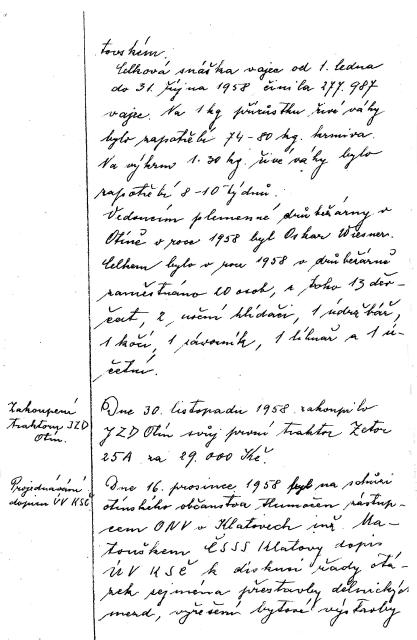 tovském.
Celková snáška vajec od 1. ledna
do 31. října 1958 činila 277.987
vajec. Na 1 kg přírůstku živé váhy
bylo zapotřebí 74-80 kg. krmiva.
Na výkrm 1.30 kg. živé váhy bylo
zapotřebí 8-10 týdnů.
Vedoucím plemenné drůbežárny v
Otíně v roce 1958 byl Oskar Wiesner.
Celkem bylo v roce 1958 v drůbežárně
zaměstnáno 20 osob, z toho 13 děv-
čat, 2 noční hlídači, 1 údržbář,
1 kočí, 1 závorník, 1 líhnař a 1 ú-
četní.
Zakoupení
traktoru JZD
Otín.
Dne 30. listopadu 1958 zakoupilo
JZD Otín svůj první traktor Zetor
25A za 29.000 Kč.
Projednávání
dopisu ÚV KSČ
Dne 16. prosince 1958 byl na schůzi
otínského občanstva tlumočen zástup-
cem ONV v Klatovech inž. Ma-
touškem ČSSS Klatovy dopis
ÚV KSČ k diskusi řady otá-
zek zejména přestavby dělnických
mezd, vyřešení bytové výstavby